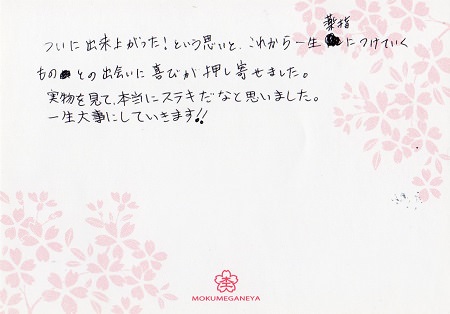 ついに出来上がった！という思いと、これから一生薬指につけていく
ものとの出会いに喜びが押し寄せました。
実物を見て、本当にステキだなと思いました。
一生大事にしていきます!!
MOKUMEGANEYA